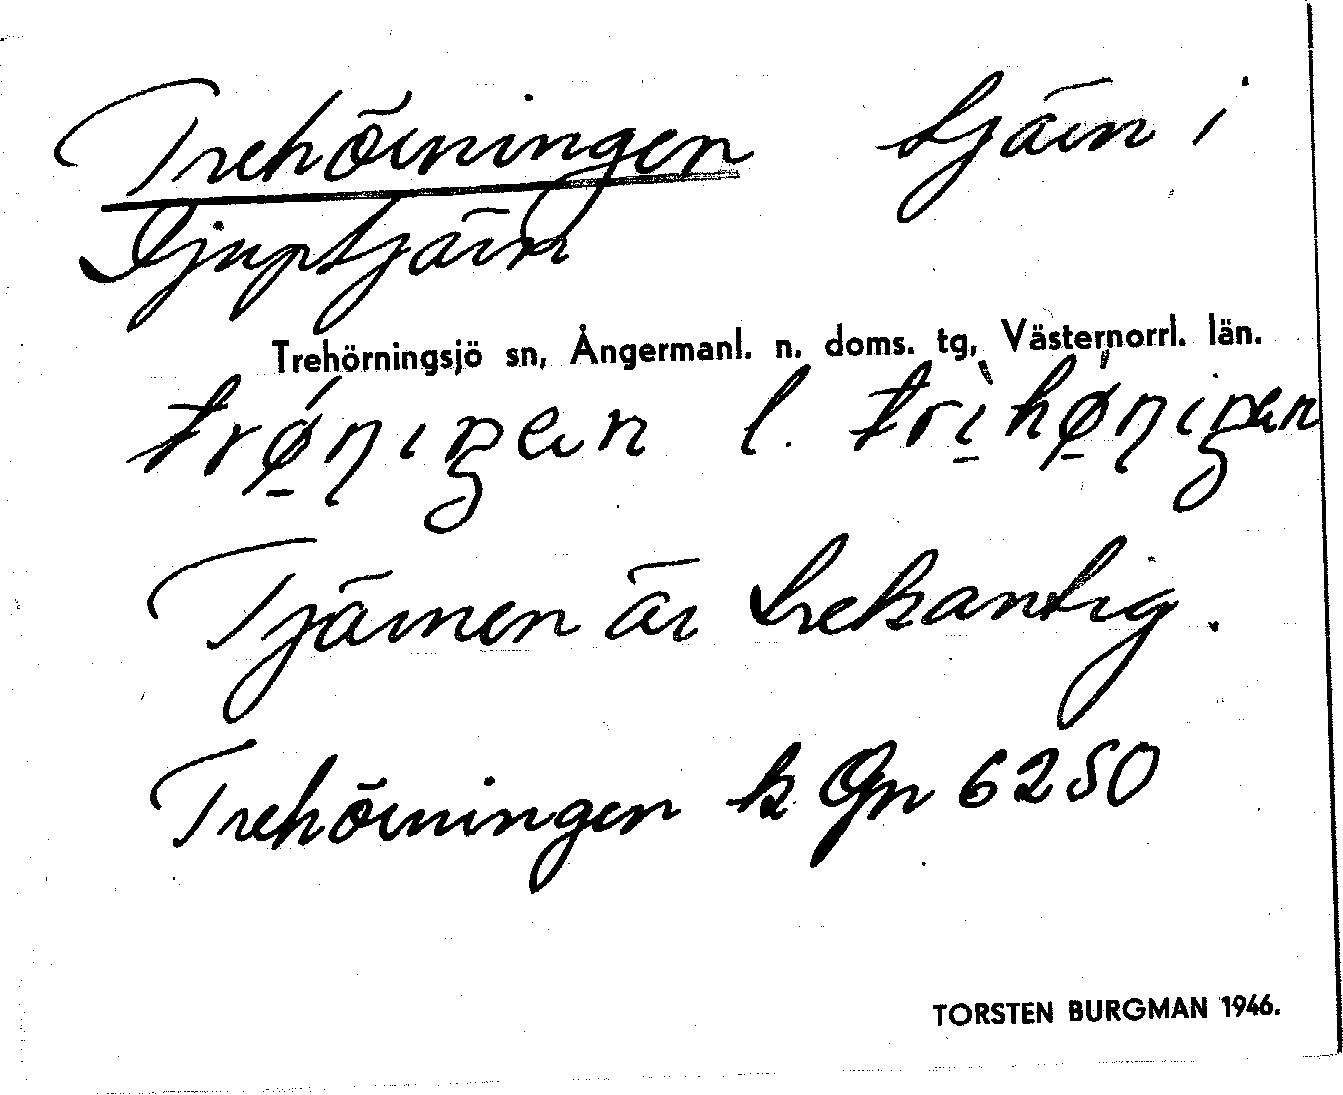 Trehörningen tjärn i
Djuptjärn
Trehörningsjö sn, Ångermanl. n. doms. tg, Västernorrl. län.
Tjärnen är trekantig.
Trehörningen k Gn 6250
TORSTEN BURGMAN 1946.